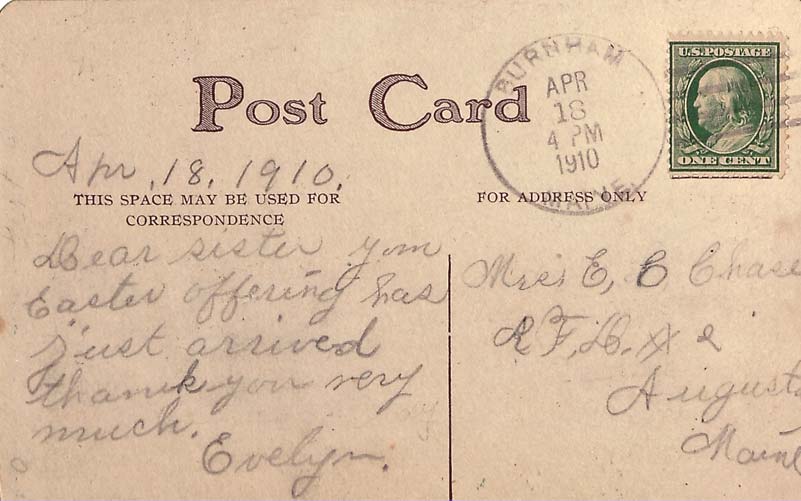 Post Card
BURNHAM
APR
18
4 PM
1910
MAINE
U.S. POSTAGE
ONE CENT
Apr. 18, 1910.
THIS SPACE MAY BE USED FOR
CORRESPONDENCE
FOR ADDRESS ONLY
Dear sister your
Easter offering has
just arrived
thank you very
much.
Evelyn.
Mrs. E, C Chase
R.F.D. # 2
Augusta
Maine